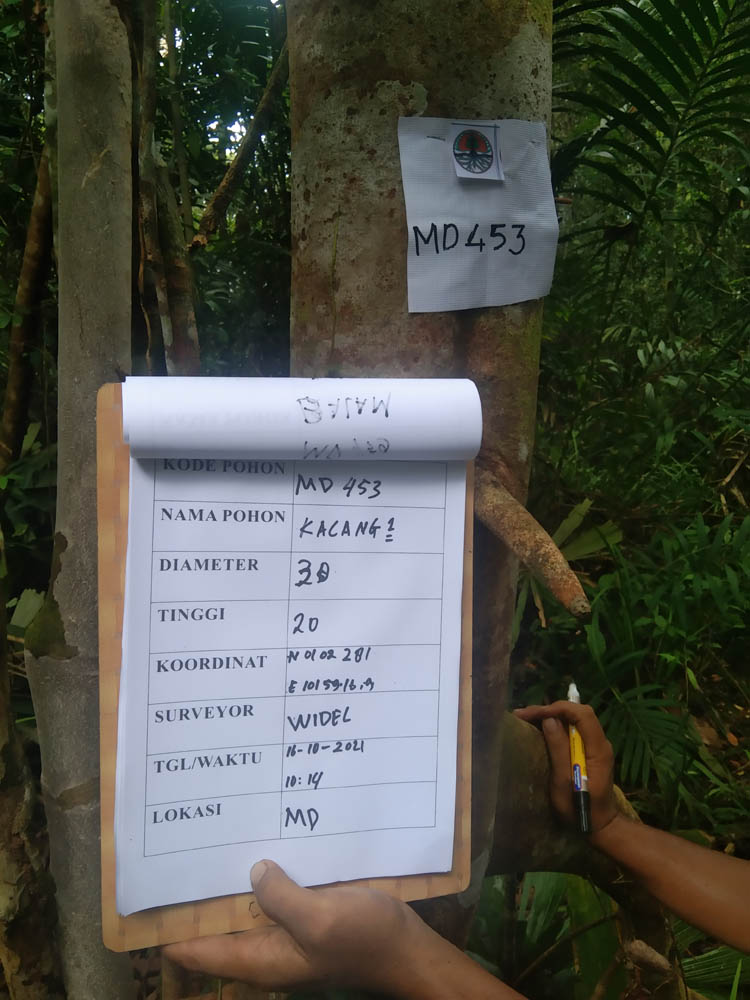 MD453
KODE POHON MD 453
NAMA POHON KACANG 2
DIAMETER 30
TINGGI 20
KOORDINAT N 01 02 281
E 101 59 16,9
SURVEYOR WIDEL
TGL/WAKTU 16-10-2021
10:14
LOKASI MD